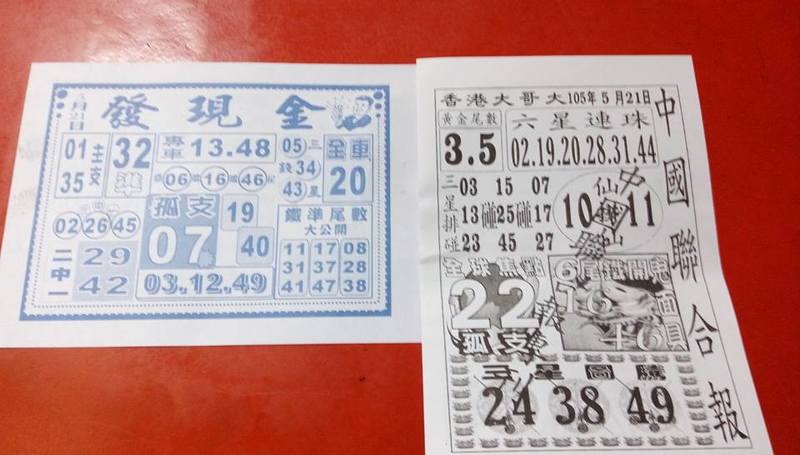 5月21日
發現金
01
35
主支
32
準
專車
13.48
06 16 46
05
34
43
三
錢
星
全車
20
02 26 45
二中一
29
42
孤支
07
19
40
03,12,49
鐵準尾數
大公開
11 17 08
31 37 28
41 47 38
香港大哥大105年5月21日
黃金尾數
3.5
六星連珠
02.19.20.28.31.44
三星排碰
03 15 07
13碰25碰17
23 45 27
10
11
仙
全球焦點
22
孤支
6尾鐵開鬼
16
46
24 38 49
中國聯合報
中國聯
報